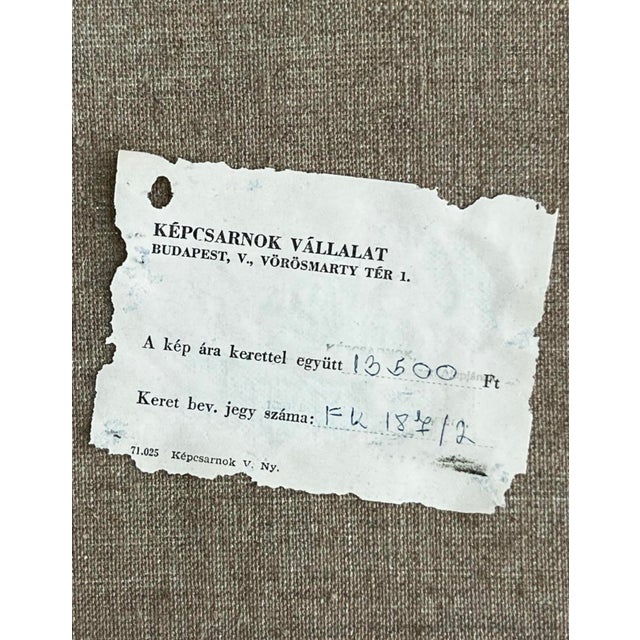 KÉPCSARNOK VÁLLALAT
BUDAPEST, V., VÖRÖSMARTY TÉR 1.
A kép ára kerettel együtt 13500 Ft
Keret bev. jegy száma: FK 187/2
71.025 Képcsarnok V. Ny.